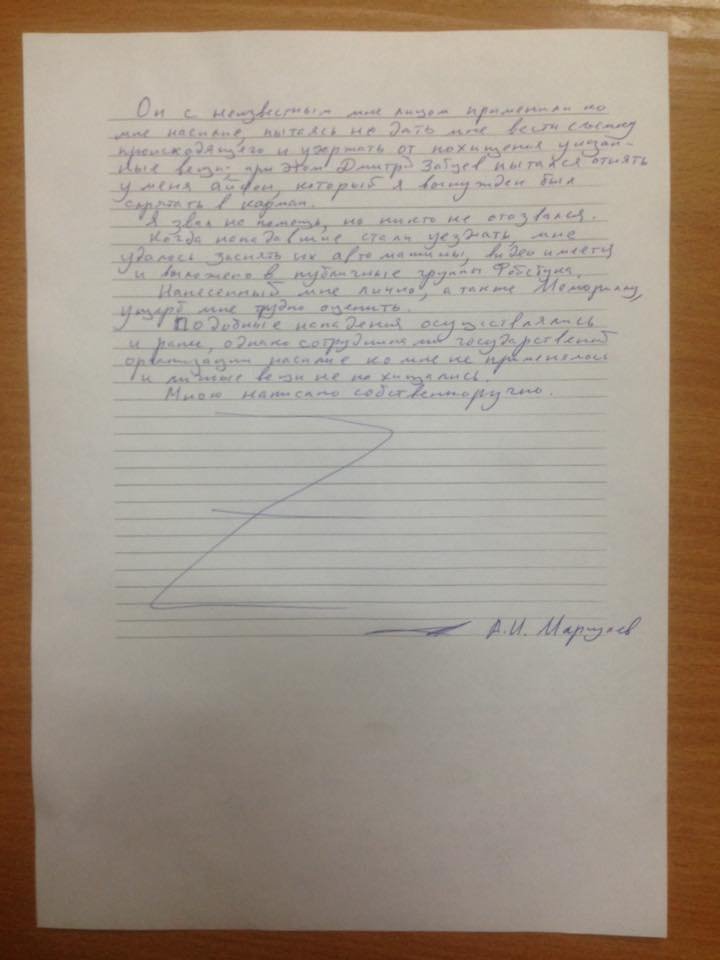 Он с неизвестным мне лицом применили ко
мне насилие, пытаясь не дать мне вести съемку
происходящего и удержать от похищения указан-
ные вещи. при этом Дмитрий пытался отнять
у меня айфон, который я вынужден был
спрятать в карман.
Я звал на помощь, но никто не отозвался.
Когда нападавшие стали уезжать, мне
удалось заснять их автомашины, видео имеется
и выложено в публичные группы Фейсбука.
Нанесенный мне лично, а также Мемориалу,
ущерб мне трудно оценить.
Подобные нападения осуществлялись
и ранее, однако сотрудниками государственной
организации насилие ко мне не применялось
и личные вещи не похищались.
Мною написано собственноручно.
А.И.